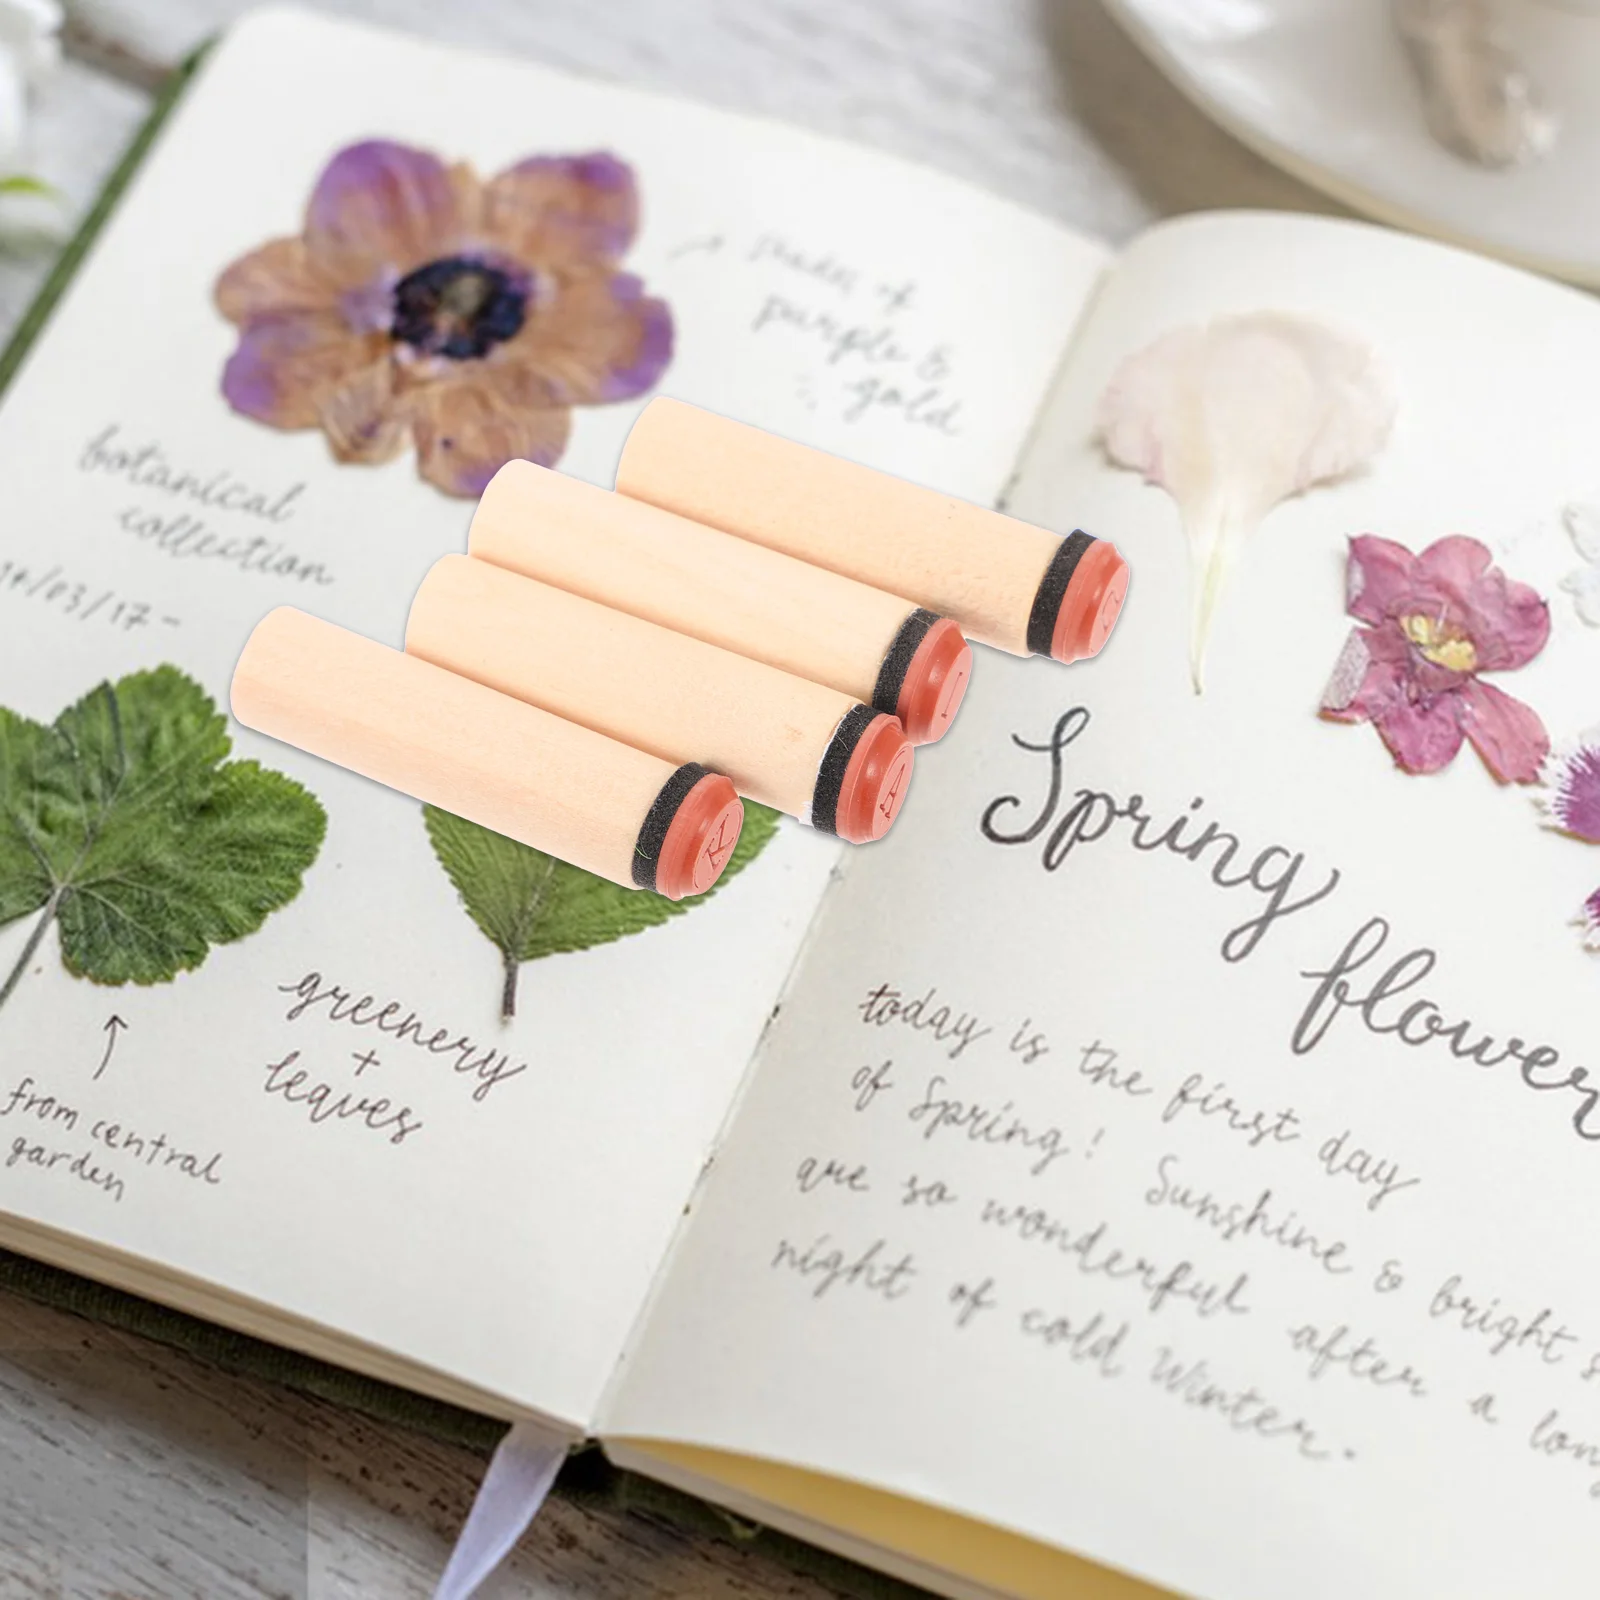 shades of
purple &
gold
botanical
collection
14/03/17 -
greenery
+
leaves
from central
garden
Spring
flower
today is the first day
of Spring! Sunshine & bright s
are so wonderful after a long
night of cold Winter.
R
A